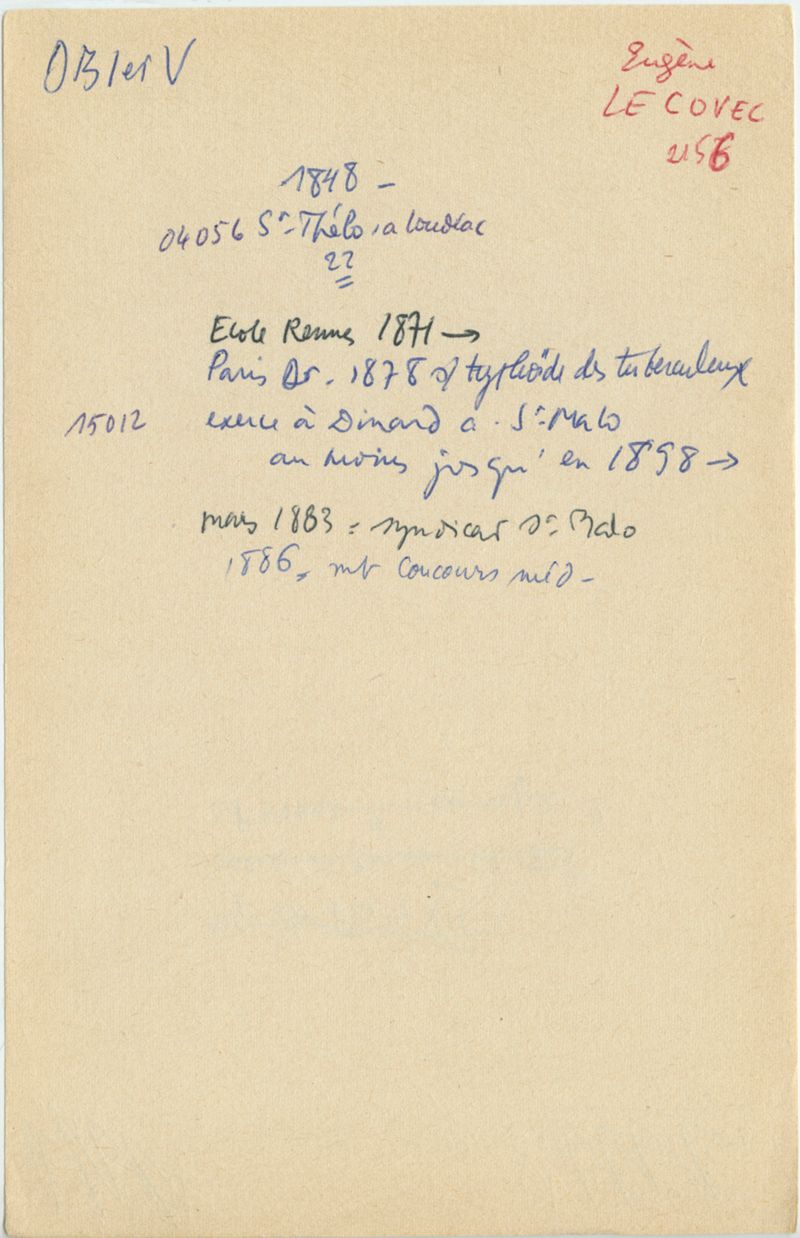 OB1et V
Eugène
LE COVEC
2156
1848 -
04056 St-Thélo, a Loudeac
22
Ecole Rennes 1871 →
Paris Dr. 1878 s/ typhoïde des tuberculeux
15012 exerce à Dinard a. St-Malo
au moins jusqu' en 1898 →
mars 1883 = syndicat St Malo
1886 = mb Concours méd -